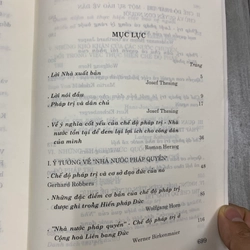 MỤC LỤC
Trang
Lời Nhà xuất bản 5
Josef Thesing
Lời nói đầu 9
Pháp trị và dân chủ 17
Josef Thesing
Về ý nghĩa cốt yếu của chế độ pháp trị - Nhà
nước tồn tại để đem lại lợi ích cho công dân
của mình
Roman Herzog
I. Ý TƯỞNG VỀ "NHÀ NƯỚC PHÁP QUYỀN"
Chế độ pháp trị và cơ sở đạo đức của nó
Gerhard Robbers
Những đặc điểm cơ bản của chế độ pháp trị
được ghi trong Hiến pháp Đức
Wolfgang Horn
"Nhà nước pháp quyền" - Chế độ pháp trị ở
Cộng hoà Liên bang Đức
Werner Birkenmaier